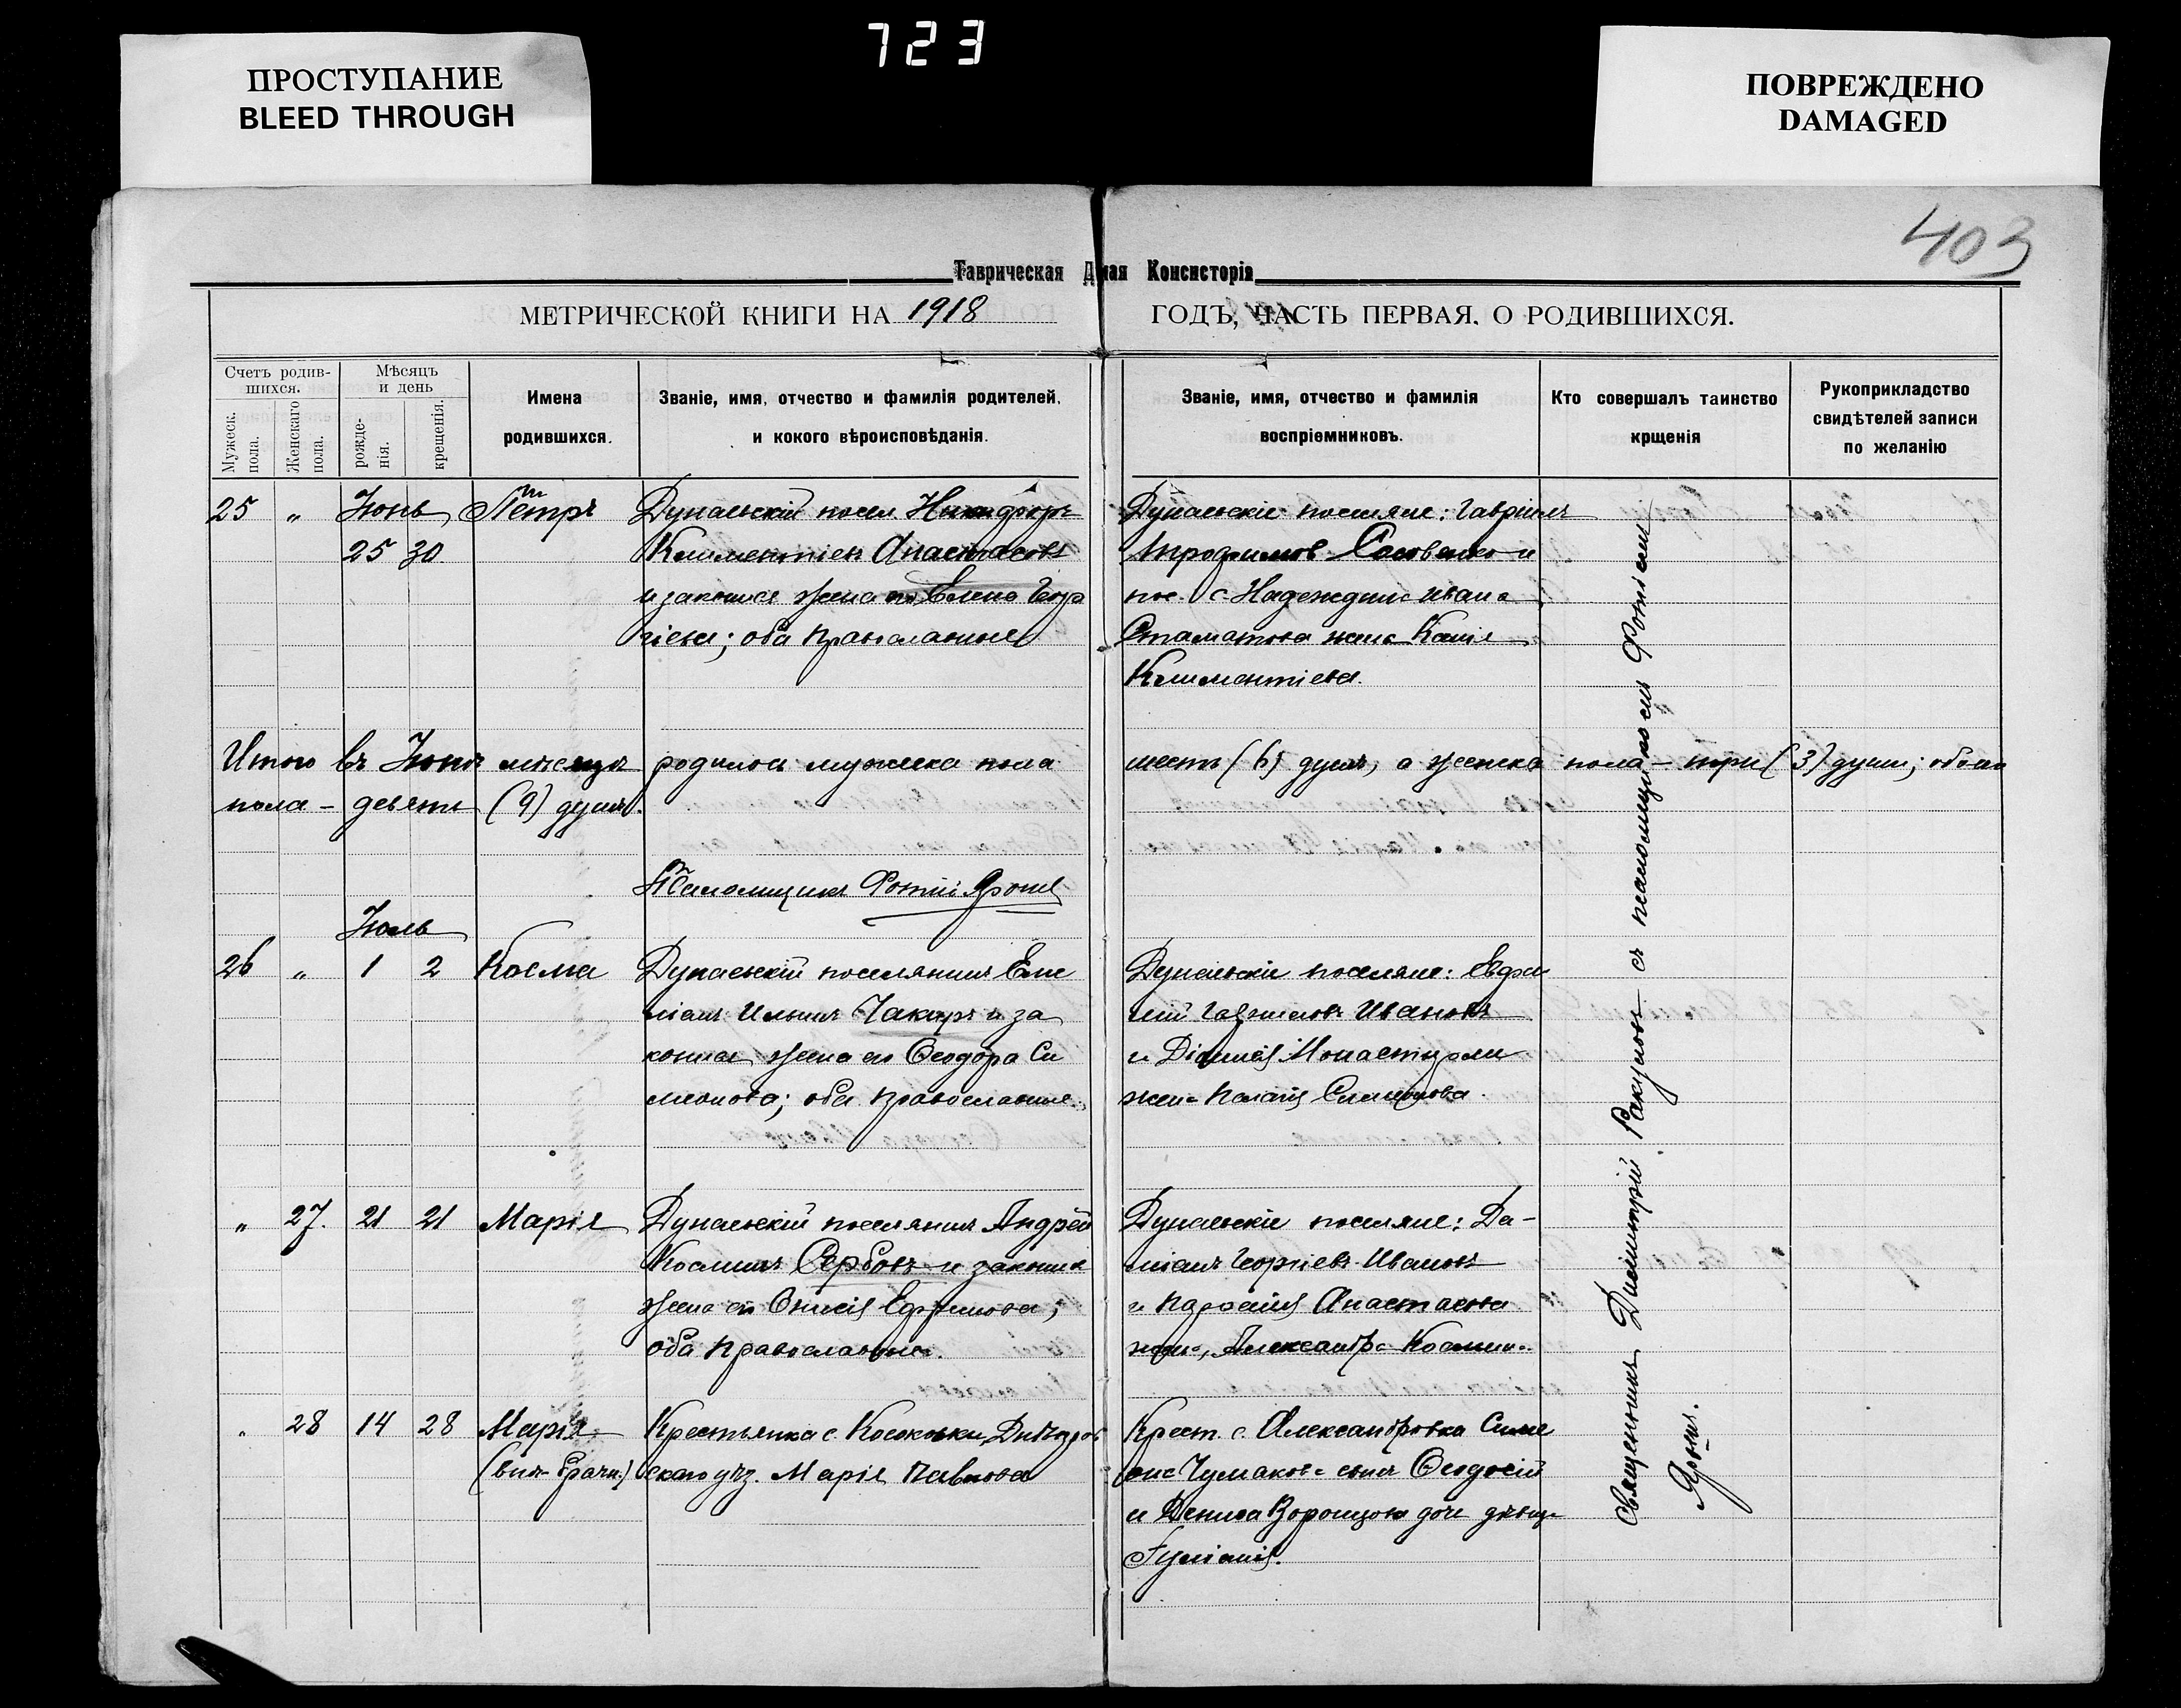 ПРОСТУПАНИЕ
BLEED THROUGH
723
ПОВРЕЖДЕНО
DAMAGED
403
Таврическая Д ная Консисторія
МЕТРИЧЕСКОЙ КНИГИ НА 1918 ГОДЪ, ЧАСТЬ ПЕРВАЯ. О РОДИВШИХСЯ.
Счетъ родив-
шихся.
Мужеск.
пола.
Женскаго
пола.
Мѣсяцъ
и день
рожде-
нія.
крещенія.
Имена
родившихся.
Званіе, имя, отчество и фамилія родителей,
и кокого вѣроисповѣданія.
Званіе, имя, отчество и фамилія
воспріемниковъ.
Кто совершалъ таинство
крщенія
Рукоприкладство
свидѣтелей записи
по желанію
25 " Іюнь Петръ
25 30
Дунаевскій посел. Никифоръ
Климентіевъ Анастасовъ
и законная жена его Елена Геор
гіева; оба православные
Дунаевскіе поселяне: Гавріилъ
Трофимов
пос. с. Надеждина Ивана
Стаматова жена
Климентіева.
Итого въ Іюнѣ мѣсяцѣ родилось мужеска пола шесть (6) душъ, а женска пола – три (3) души; обоего
пола – девять (9) душъ.
Псаломщикъ Фотій
Іюль
26 " 1 2 Косма
Дунаевскій поселянинъ Еме
ліанъ Ильинъ Чакиръ и за
конная жена его Ѳеодора Си
меонова; оба православные.
Дунаевскіе поселяне: Евфи
мій Гавриловъ Ивановъ
и Діонисія Монастырли
жена Пелагія Симеонова.
" 27. 21 21 Марія
Дунаевскій поселянинъ Андрей
Косминъ Сербовъ и законная
жена его Евфимова;
оба православные.
Дунаевскіе поселяне: Да-
міанъ Георгіевъ Ивановъ
и Анастасова
жена, Александра Космин
" 28 14 28 Марія
(внѣ-брачн.)
Крестьянка с. Днѣпров
скаго уѣз. Марія Павлова
Крест. с. Александровка Симе
она Чумакова сынъ Ѳеодосій
и Дениса Воронцова дочь дѣвица
Іуліанія.
Священникъ Димитрій съ псаломщикомъ Фотіемъ